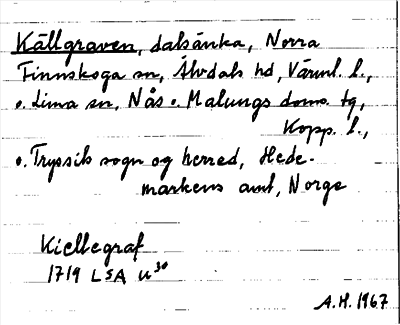 Källgraven, dalsänka, Norra
Finnskoga sn, Älvdals hd, Värml. l.,
o. Lima sn, Nås o. Malungs doms. tg,
Kopp. l.,
o. Trysils sogn og herred, Hede-
markens amt, Norge
Kiellegraf
1719 LSA U³⁰
A.H. 1967